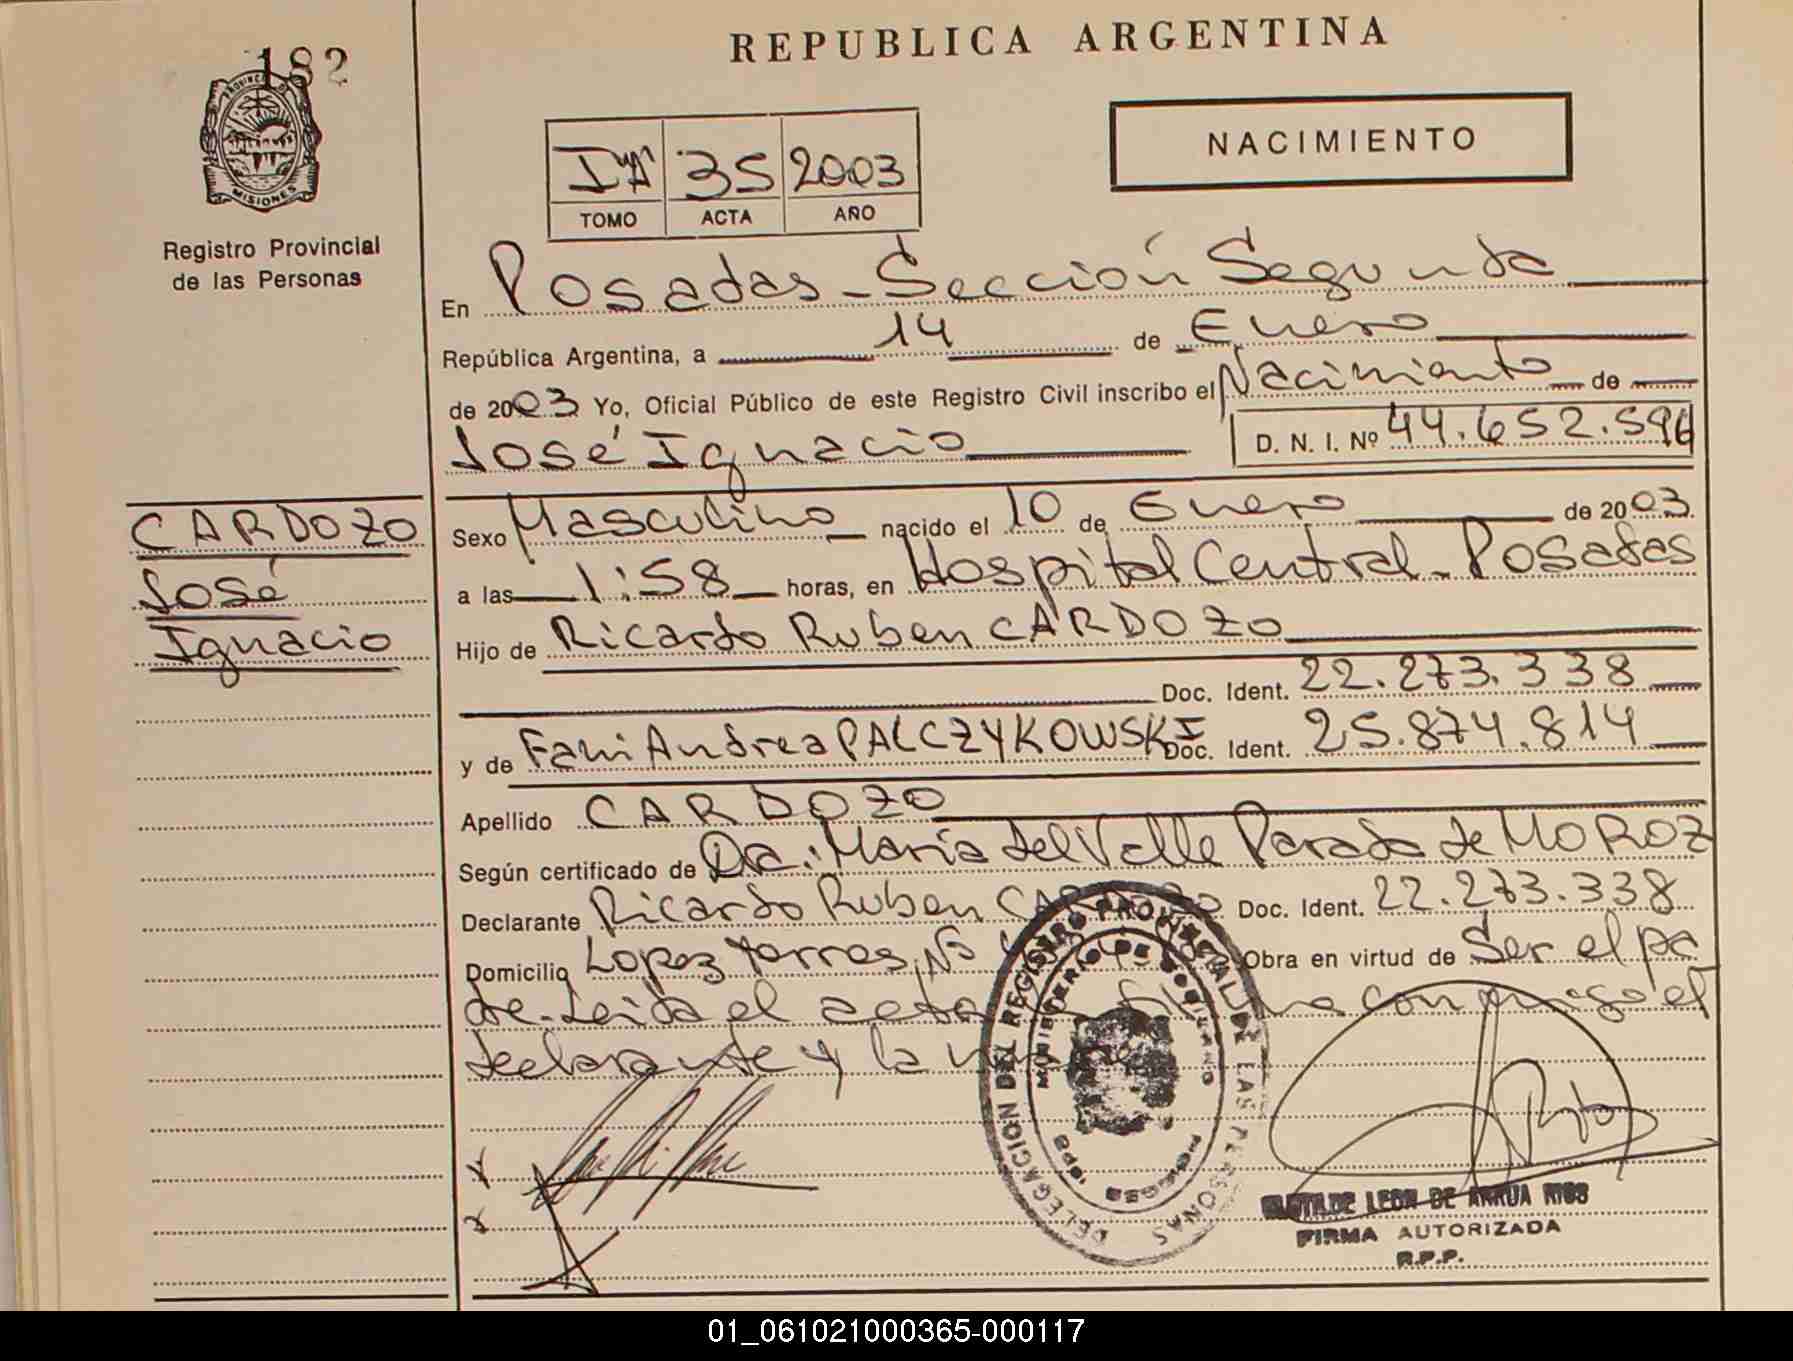 182
PROVINCIA DE
MISIONES
Registro Provincial
de las Personas
REPUBLICA ARGENTINA
NACIMIENTO
35 2003
TOMO ACTA AÑO
En Posadas - Sección Segunda
República Argentina, a 14 de Enero
de 2003 Yo, Oficial Público de este Registro Civil inscribo el Nacimiento de
José Ignacio D. N. I. Nº 44.652.596
CARDOZO
José
Ignacio
Sexo Masculino nacido el 10 de Enero de 2003
a las 1:58 horas, en Hospital Central - Posadas
Hijo de Ricardo Ruben CARDOZO
Doc. Ident. 22.273.338
y de Fani Andrea PALCZYKOWSKI Doc. Ident. 25.874.814
Apellido CARDOZO
Según certificado de Dra. María del Valle Parada de MOROZ
Declarante Ricardo Ruben CARDOZO Doc. Ident. 22.273.338
Domicilio Lopez torres Nº Obra en virtud de Ser el pa
dre. Leida el acta firma conmigo el
declarante y la
DELEGACION DEL REGISTRO PROVINCIAL DE LAS PERSONAS
MINISTERIO DE GOBIERNO
POSADAS
LEON DE RIOS
FIRMA AUTORIZADA
R.P.P.
01_061021000365-000117